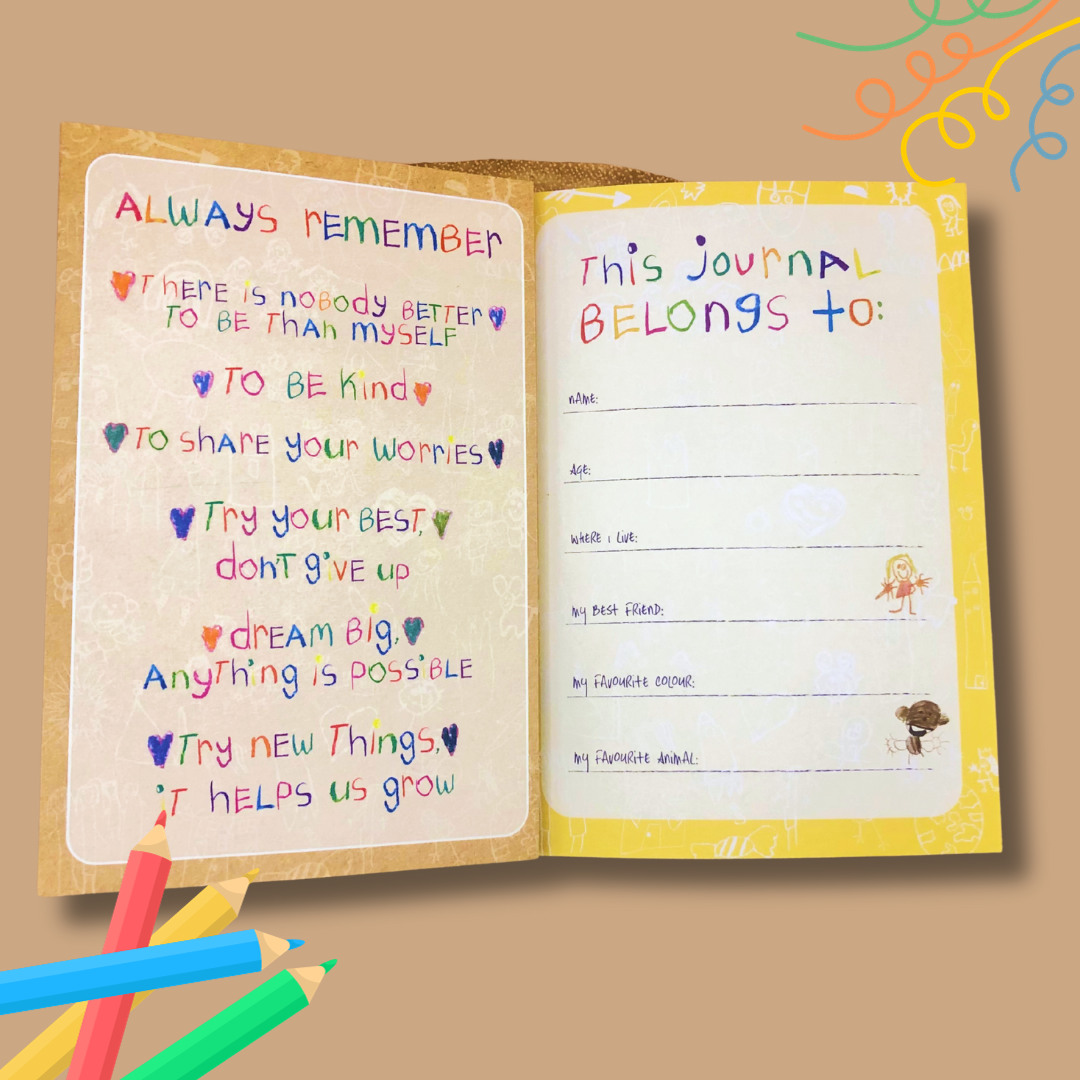 ALWAYS rEMEMBER
THERE is noBody BETTER
TO BE THAn mySELF
TO BE Kind
TO shARE your worriES
Try your BEST,
don'T giVE up
drEAM Big,
AnyThing is possiBLE
Try nEW Things,
iT hELPS us grow
This journAL
BELOngs to:
nAME:
AGE:
WHERE i LivE:
my BEST FRiEnD:
my FAVOURitE COLOUR:
my FAVOURitE AnimAL: